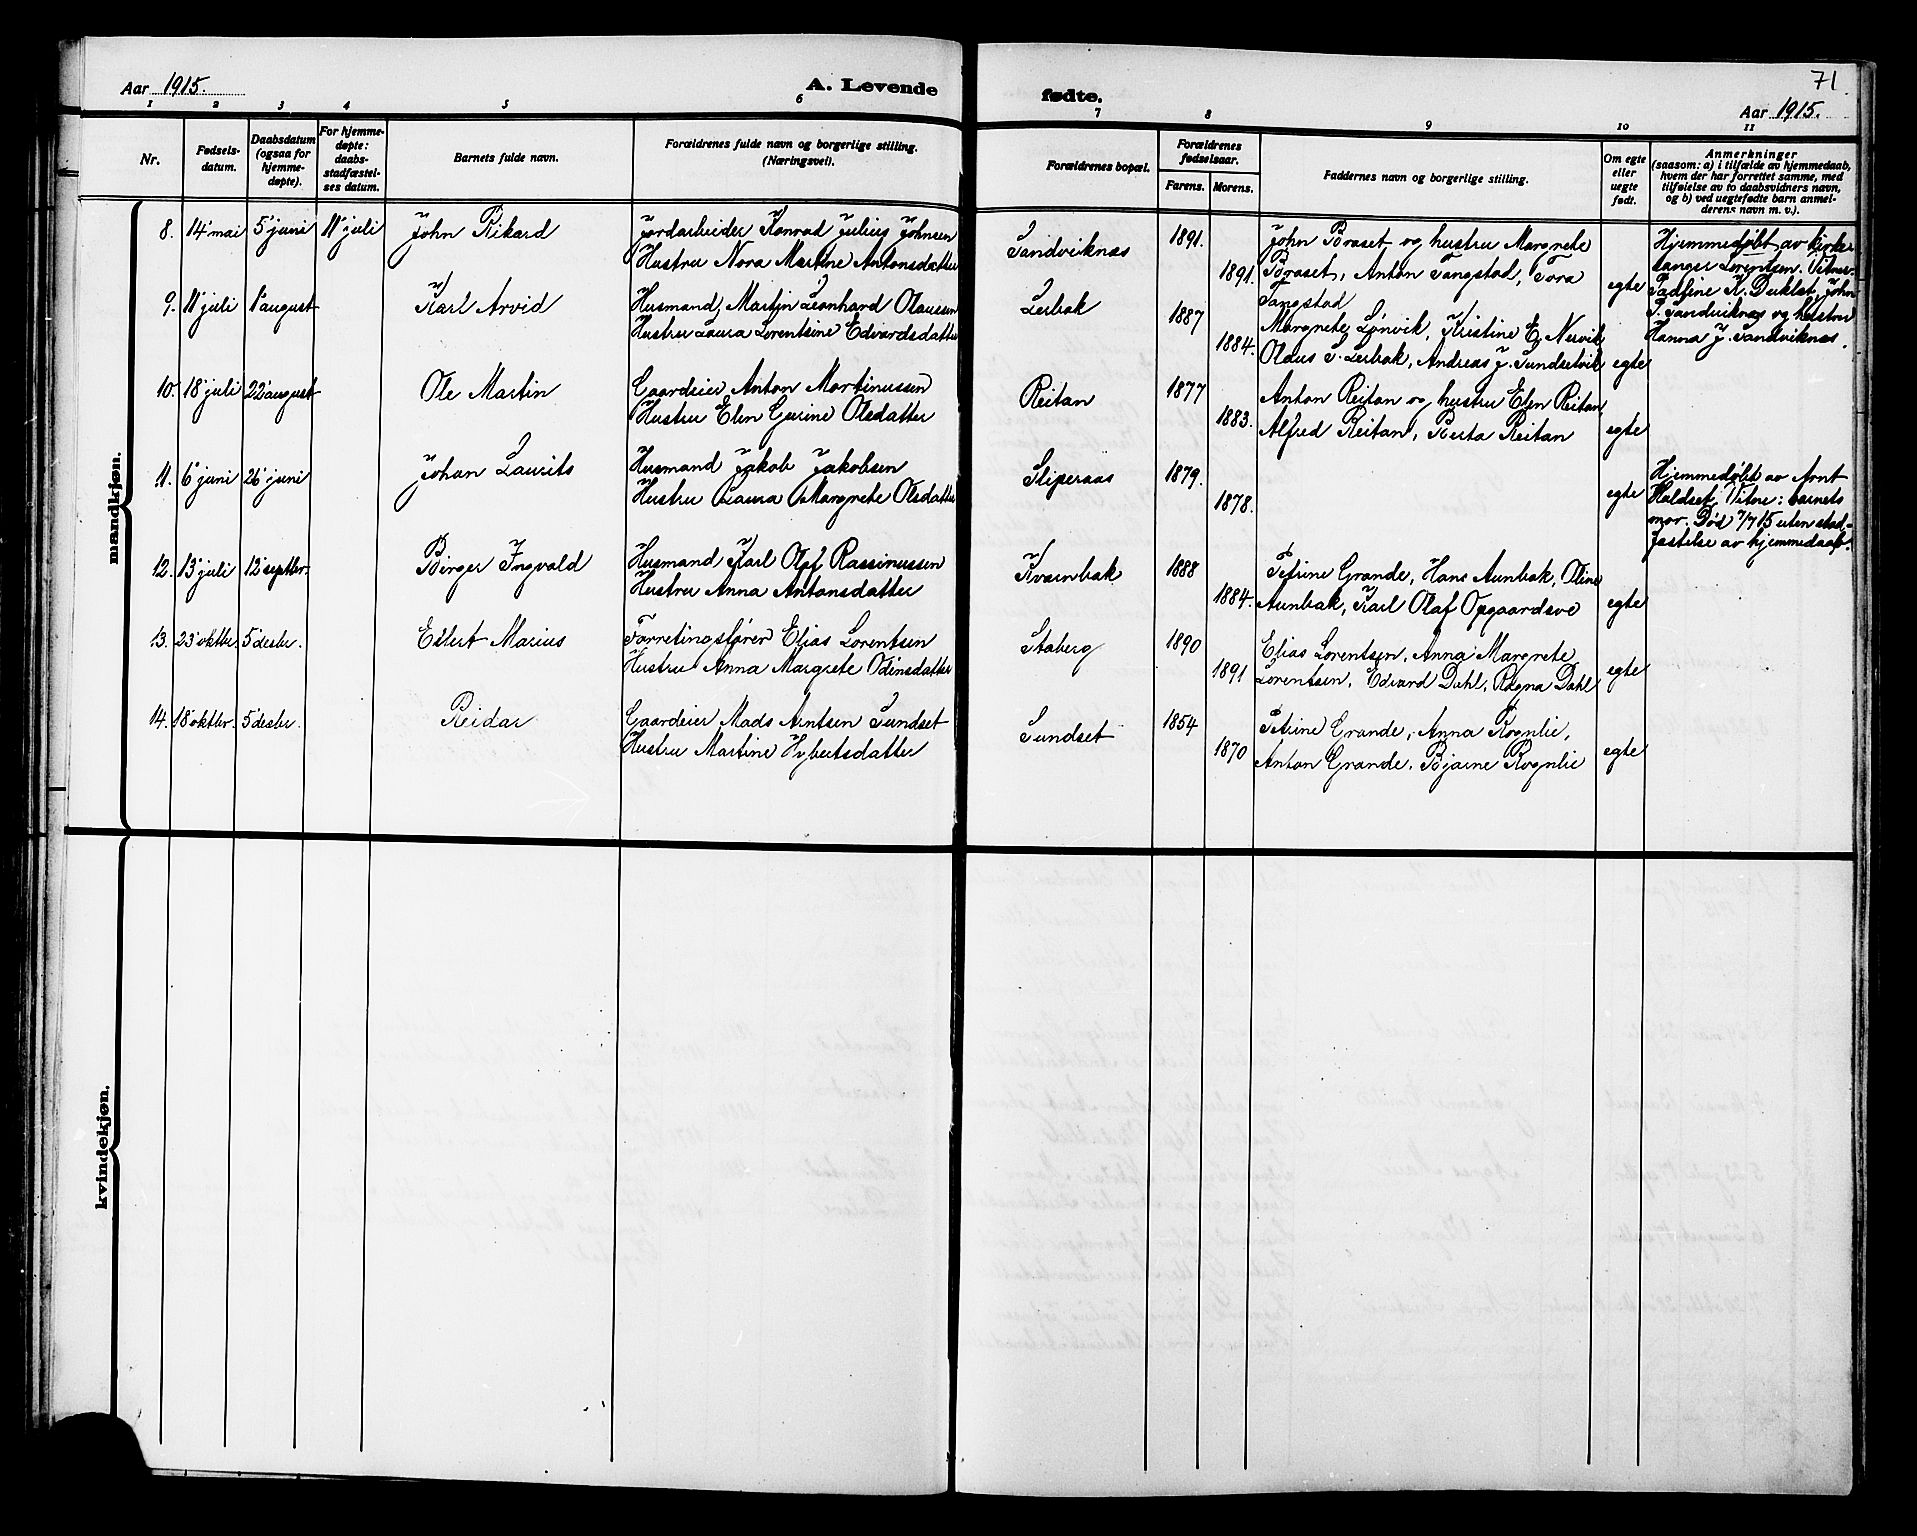 71.
Aar 1915. A. Levende fødte. Aar 1915.
1 2 3 4 5 6 7 8 9 10 11
Nr.
Fødsels-
datum.
Daabsdatum
(ogsaa for
hjemme-
døpte).
For hjemme-
døpte:
daabs-
stadfæstel-
ses datum.
Barnets fulde navn.
Forældrenes fulde navn og borgerlige stilling.
(Næringsvei).
Forældrenes bopæl.
Forældrenes
fødselsaar.
Farens. Morens.
Faddernes navn og borgerlige stilling.
Om egte
eller
uegte
født.
Anmerkninger
(saasom: a) i tilfælde av hjemmedaab,
hvem der har forrettet samme, med
tilføielse av to daabsvidners navn,
og b) ved uegtefødte barn anmel-
derens navn m. v.).
mandkjøn.
8. 14' mai 5' juni 11' juli John Rikard Jordarbeider Konrad Julius Johnsen Sandviknæs 1891. John Braset og hustru Margrete
Hustru Nora Martine Antonsdatter 1891. Braset, Anton Tangstad, Tora egte
Tangstad
Hjemmedøbt av kirke-
sanger Lorentzen. Vitner:
K. Duklæt, John
S. Sandviknæs og hustru
Hanna J. Sandviknæs.
9. 11' juli 1' august Karl Arvid Husmand, Martin Leonhard Olaussen Lerbak 1887 Margrete Lønvik, Kristine E. Nervik,
Hustru Laura Lorentsine Edvardsdatter 1884. Olaus S. Lerbak, Andreas J. Sundsetvik egte
10. 18' juli 22' august Ole Martin Gaardeier Anton Martinussen Reitan 1877 Anton Reitan og hustru Elen Reitan,
Hustru Elen Gurine Olsdatter 1883. Alfred Reitan, Berta Reitan egte
11. 6' juni 26' juni Johan Laurits Husmand Jakob Jakobsen Sliperaas 1879.
Hustru Laura Margrete Olsdatter 1878. egte
Hjemmedøbt av Arnt
Haldset. Vitne: barnets
mor. Død 7/7 15 uten stad-
fæstelse av hjemmedaab.
12. 13' juli 12' septbr. Birger Ingvald Husmand Karl Olaf Rassmussen Kvarnbak 1888 Petrine Grande, Hans Aunbak, Oline
Hustru Anna Antonsdatter 1884. Aunbak, Karl Olaf Opgaardsve egte
13. 23' oktbr. 5' desbr. Eilert Marius Forretingsfører Elias Lorentsen Staberg 1890 Elias Lorentsen, Anna Margrete
Hustru Anna Margrete Odinsdatter 1891 Lorentsen, Edvard Dahl, Ragna Dahl egte
14. 18' oktbr. 5' desbr. Reidar Gaardeier Mads Arntsen Sundset Sundset 1854 Petrine Grande, Anna Rognlie,
Hustru Martine Hybertsdatter 1870 Anton Grande, Bjarne Rognlie egte
kvindekjøn.